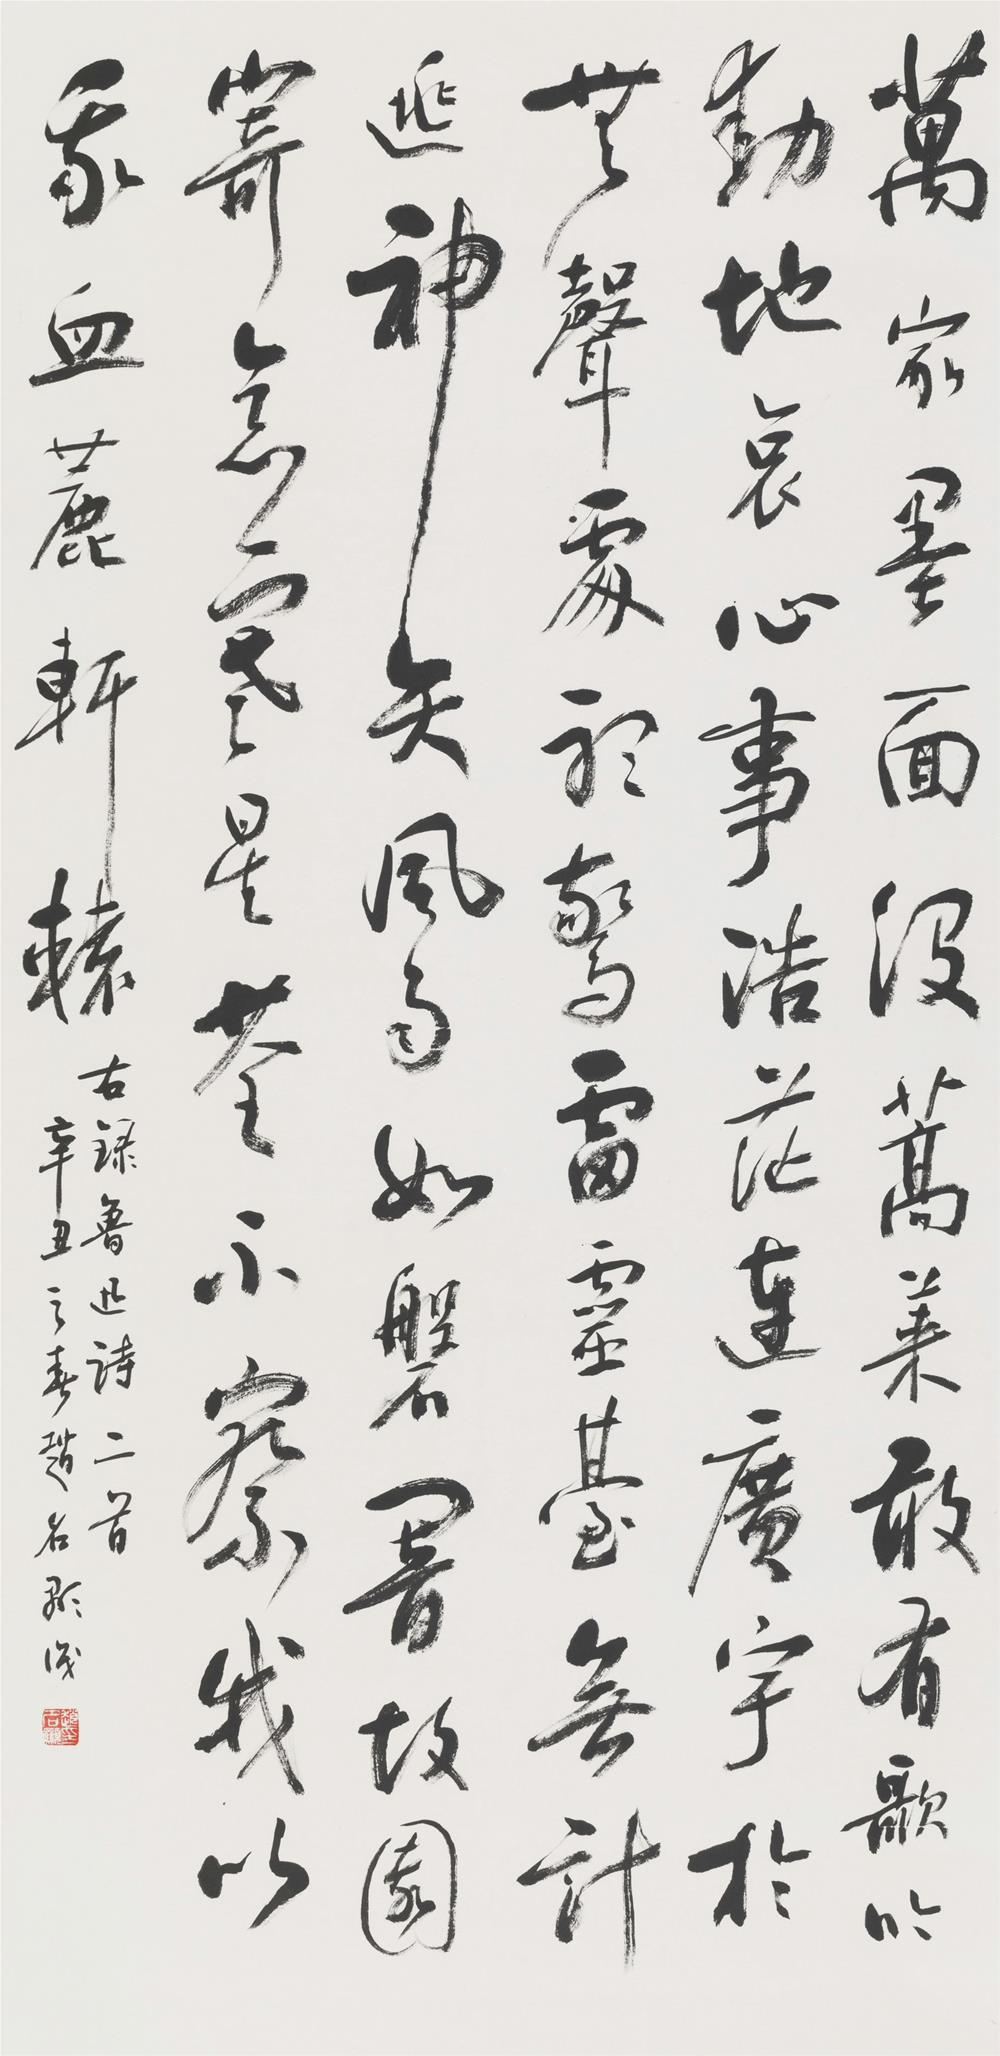 萬家墨面沒蒿萊敢有歌吟
動地哀心事浩茫連廣宇於
無聲處聽驚雷靈臺無計
逃神矢風雨如磐闇故園
寄意寒星荃不察我以
我血薦軒轅
右錄魯迅詩二首
辛丑之春趙